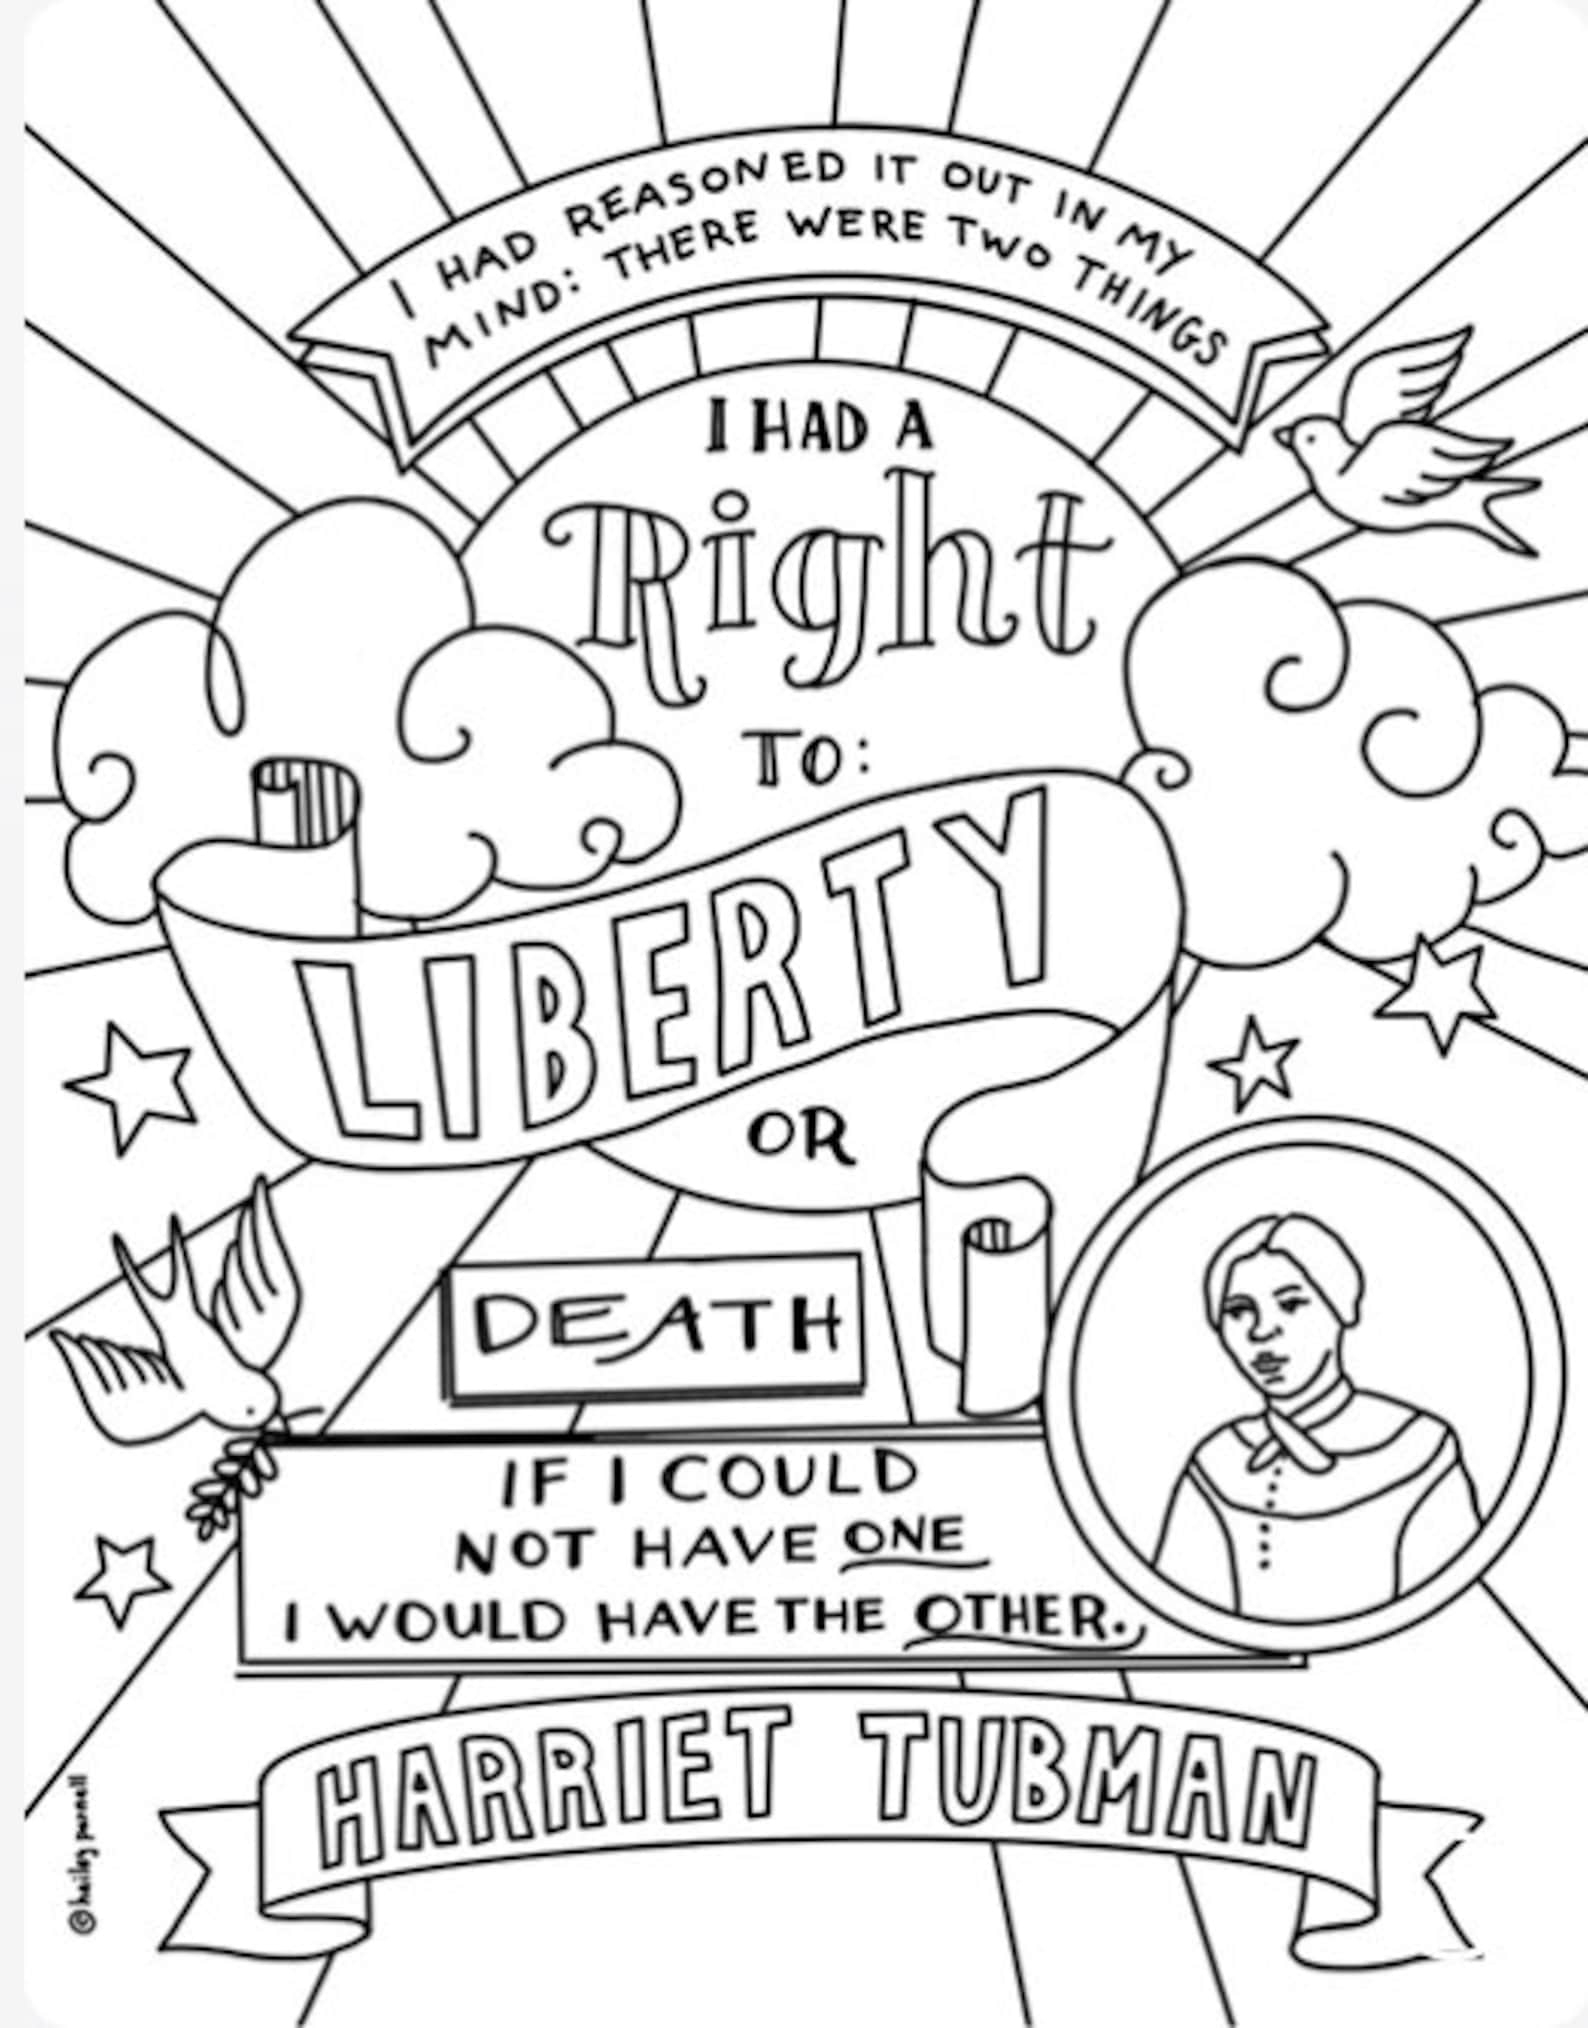 I HAD REASONED IT OUT IN MY
MIND: THERE WERE TWO THINGS
I HAD A
Right
TO:
LIBERTY
OR
DEATH
IF I COULD
NOT HAVE ONE
I WOULD HAVE THE OTHER.
HARRIET TUBMAN
© hailey parnell